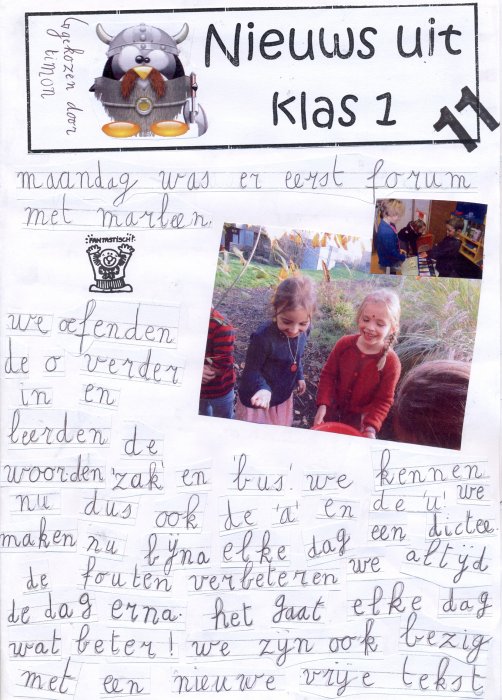 Nieuws uit
klas 1
11
gekozen door
timon
maandag was er eerst forum
met marleen.
FANTASTISCH!
we oefenden
de o verder
in en
leerden de
woorden 'zak' en 'bus'. we kennen
nu dus ook de 'a' en de 'u'. we
maken nu bijna elke dag een dictee.
de fouten verbeteren we altijd
de dag erna. het gaat elke dag
wat beter! we zijn ook bezig
met een nieuwe vrije tekst